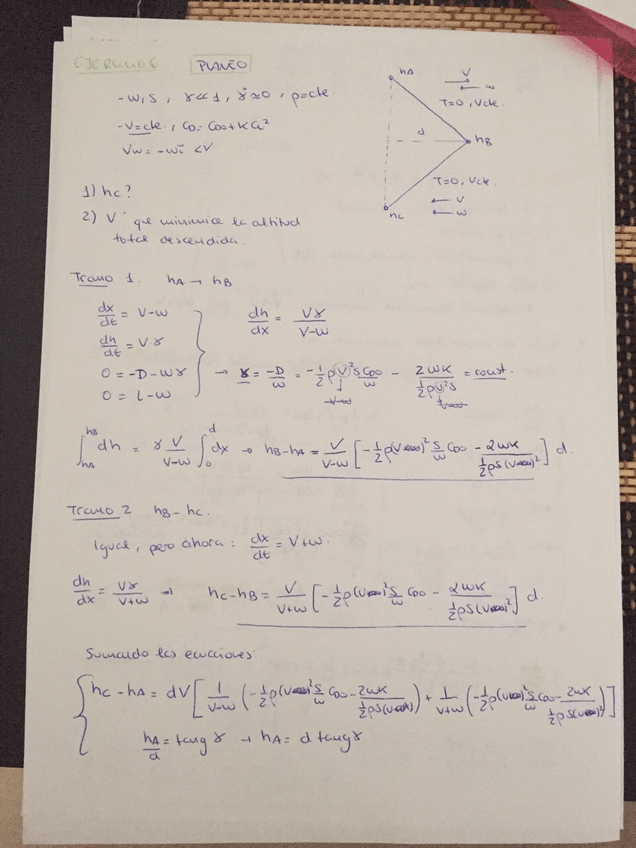 EJERCICIO 6 PLANEO
- W, S, γ << 1, γ̇ ≈ 0, ρ = cte
- V = cte, CD = CD0 + K CL²
Vw = -wī < V
1) hc?
2) V que minimice la altitud
total descendida.
hA
V
w
T=0, V cte.
d
hB
T=0, V cte.
V
w
hc
Tramo 1. hA → hB
dx/dt = V-w
dh/dt = V·γ
0 = -D-Wγ
0 = L-W
dh/dx = Vγ/(V-w)
→ γ = -D/W = -1/2 ρ V² S CD0/W - 2WK/(1/2 ρ V² S) = const.
∫_{hA}^{hB} dh = γ V/(V-w) ∫_0^d dx → hB-hA = V/(V-w) [-1/2 ρ(V)² S/W CD0 - 2WK/(1/2 ρS(V)²)] d.
Tramo 2 hB - hc.
Igual, pero ahora: dx/dt = V+w.
dh/dx = Vγ/(V+w) → hc-hB = V/(V+w) [-1/2 ρ(V)² S/W CD0 - 2WK/(1/2 ρS(V)²)] d.
Sumando las ecuaciones:
hc-hA = dV [1/(V-w) (-1/2 ρ(V)² S/W CD0 - 2WK/(1/2 ρS(V))) + 1/(V+w) (-1/2 ρ(V)² S/W CD0 - 2WK/(1/2 ρS(V)²))]
hA/d = tang γ → hA = d tang γ